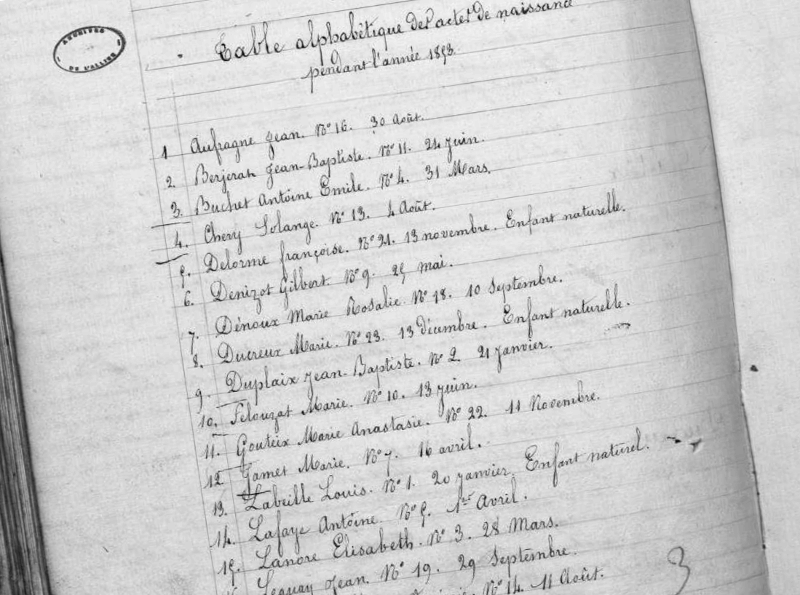 ARCHIVES
DE L'ALLIER
Table alphabétique des actes de naissance
pendant l'année 1893
1 Aufragne Jean. N° 16. 30 Août.
2 Berjerat Jean-Baptiste. N° 11. 24 Juin.
3. Buchet Antoine Emile. N° 4. 31 Mars.
4. Chery Solange. N° 13. 4 Août.
5. Delorme françoise. N° 21. 13 novembre. Enfant naturelle.
6. Denizot Gilbert. N° 9. 25 mai.
7. Dénoux Marie Rosalie. N° 18. 10 Septembre.
8. Ducreux Marie. N° 23. 13 décembre. Enfant naturelle.
9. Duplaix Jean-Baptiste. N° 2 21 Janvier.
10. Felouzat Marie. N° 10. 13 Juin.
11. Gouteix Marie Anastasie. N° 22. 11 Novembre.
12. Jamet Marie. N° 7. 16 avril.
13. Labeille Louis. N° 1. 20 Janvier. Enfant naturel.
14. Lafaye Antoine. N° 5. 1er Avril.
15. Lanore Elisabeth. N° 3. 28 Mars.
Jean. N° 19. 29 Septembre.
N° 14. 11 Août.
3